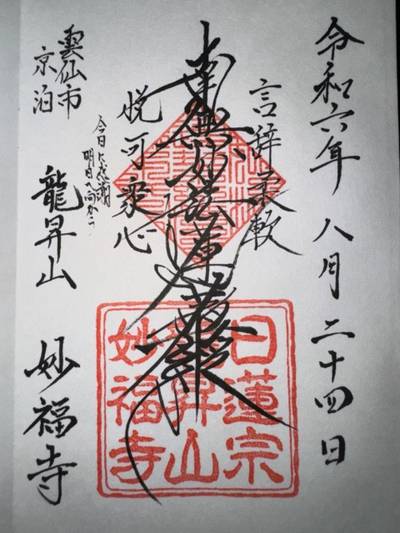 令和六年 八月 二十四日
言辞柔軟
南無妙法蓮華経
悦可衆心
今日に感謝
明日へ向かう
雲仙市
京泊
龍昇山 妙福寺
日蓮宗
龍昇山
妙福寺